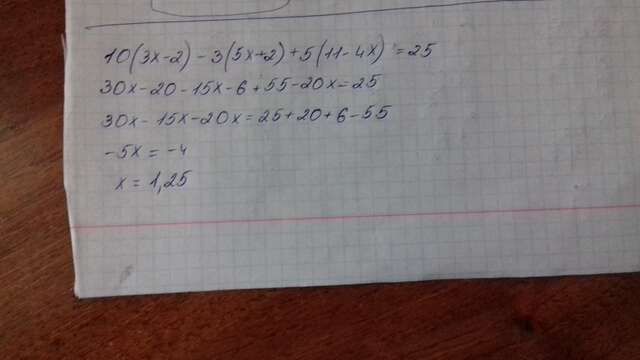 10(3x-2)-3(5x+2)+5(11-4x)=25
30x-20-15x-6+55-20x=25
30x-15x-20x=25+20+6-55
-5x=-4
x=1,25